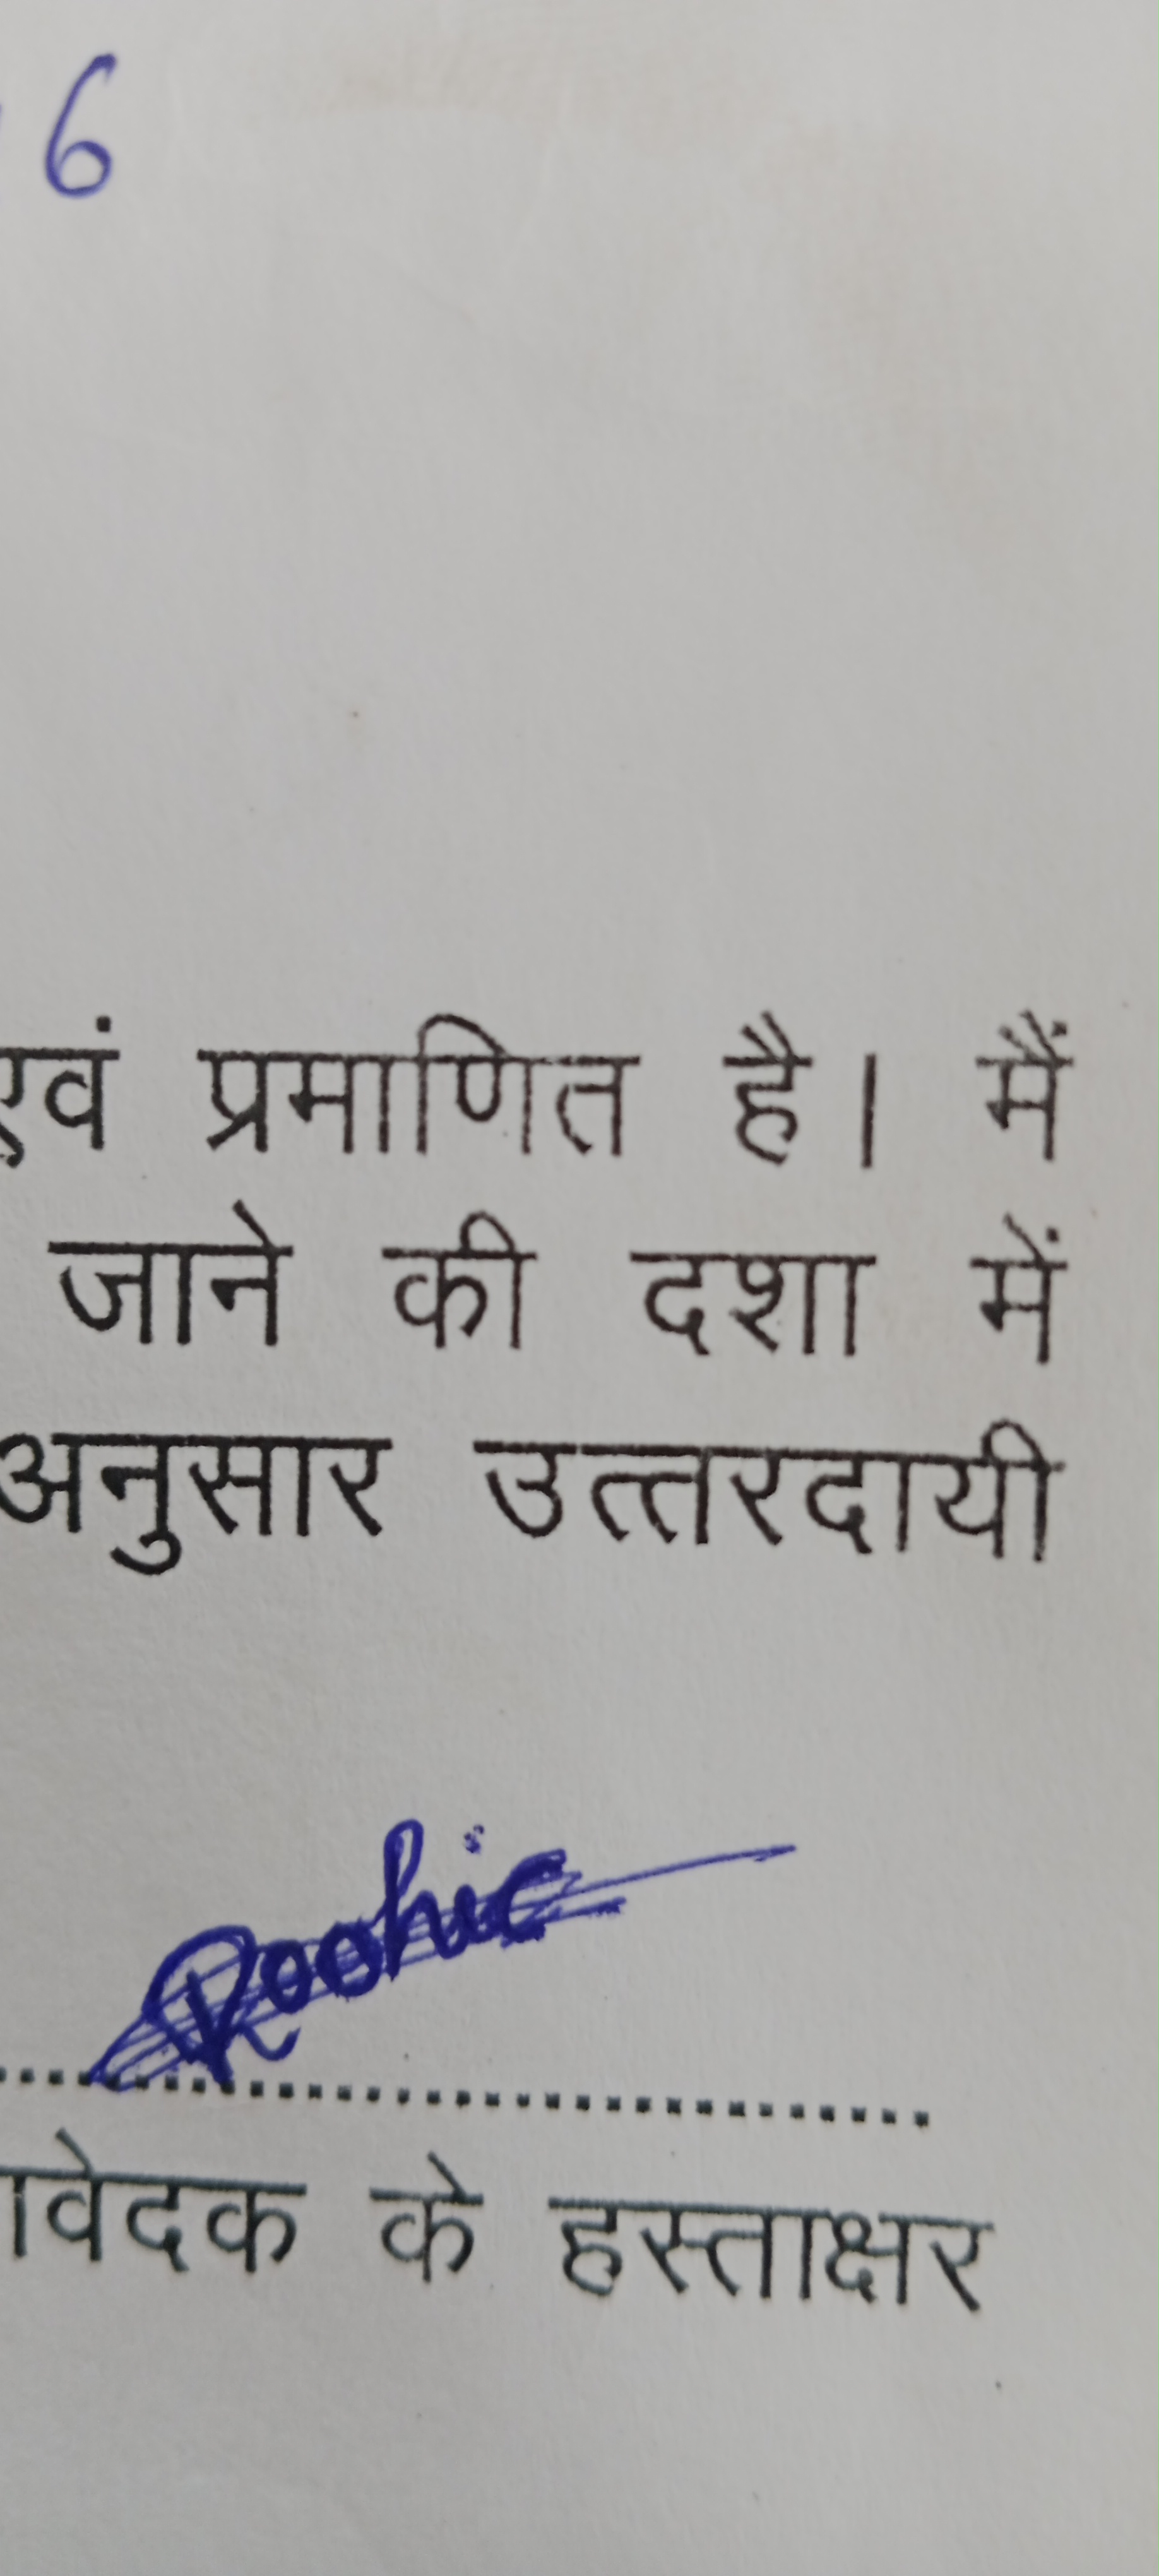 6
एवं प्रमाणित है। मैं
जाने की दशा में
अनुसार उत्तरदायी
Roohie
के हस्ताक्षर